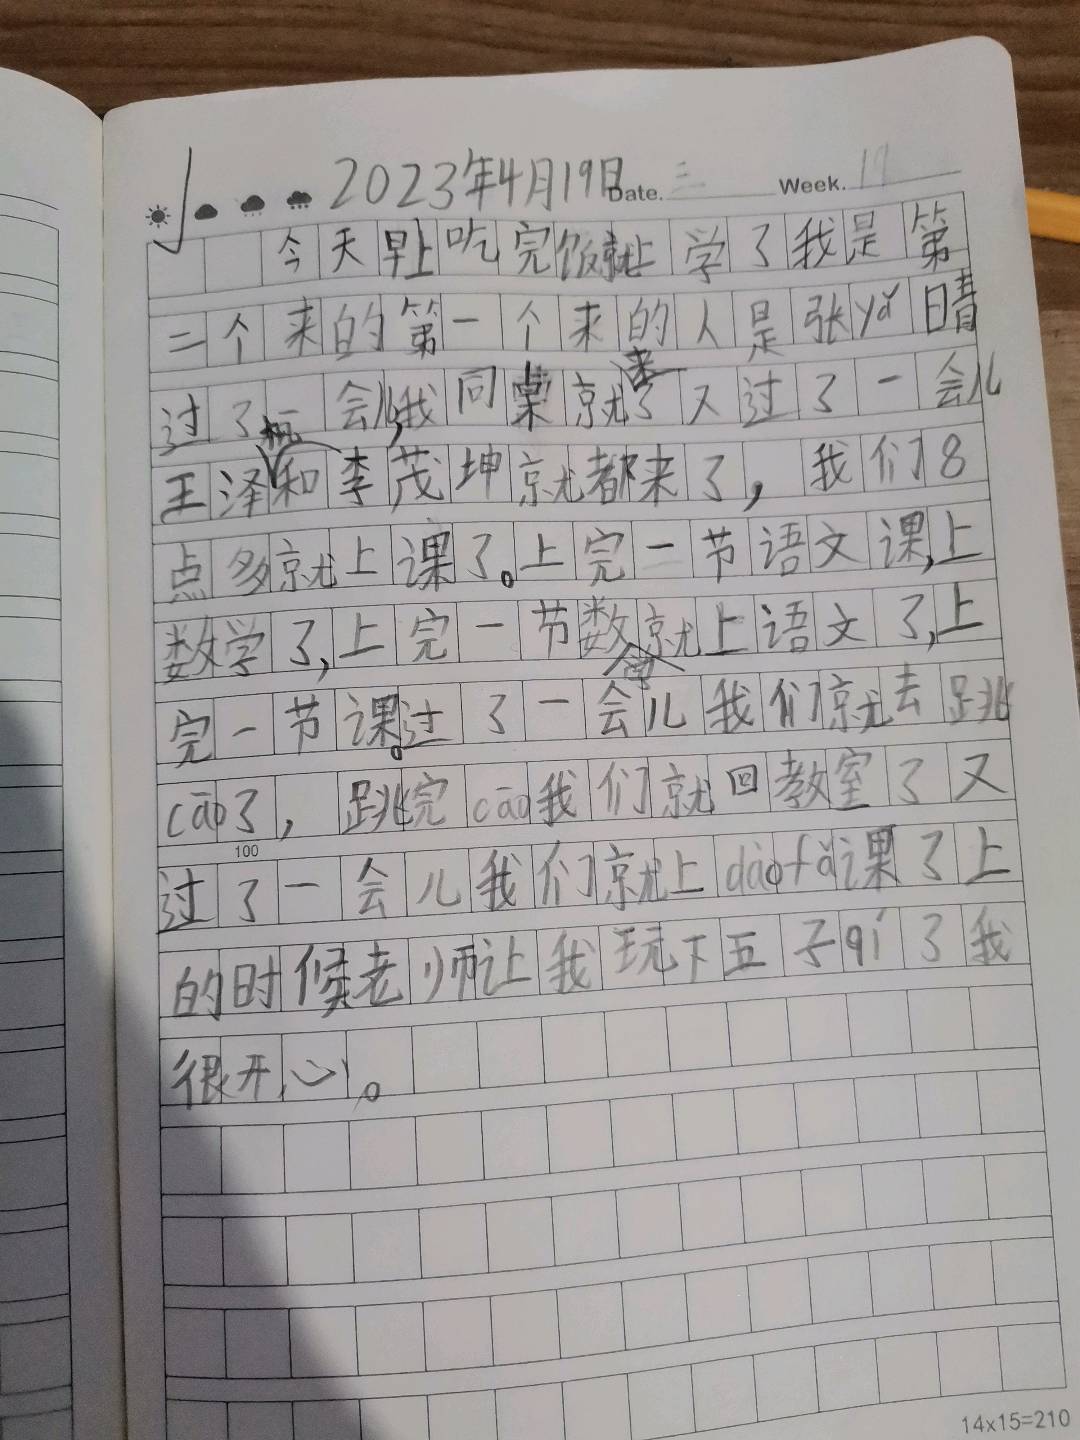 2023年4月19日 Date. 三 Week. 19
今天早上吃完饭就上学了我是第
二个来的第一个来的人是张yǎ晴
过了一会儿,我同桌就来了又过了一会儿
王泽楒和李茂坤就都来了，我们8
点多就上课了。上完一节语文课,上
数学了,上完一节数学就上语文了,上
完一节课。过了一会儿我们就去跳
cāo了，跳完cāo我们就回教室了又
100
过了一会儿我们就上dàofǎ课了上
的时候老师让我玩下五子qí了我
很开心。
14x15=210